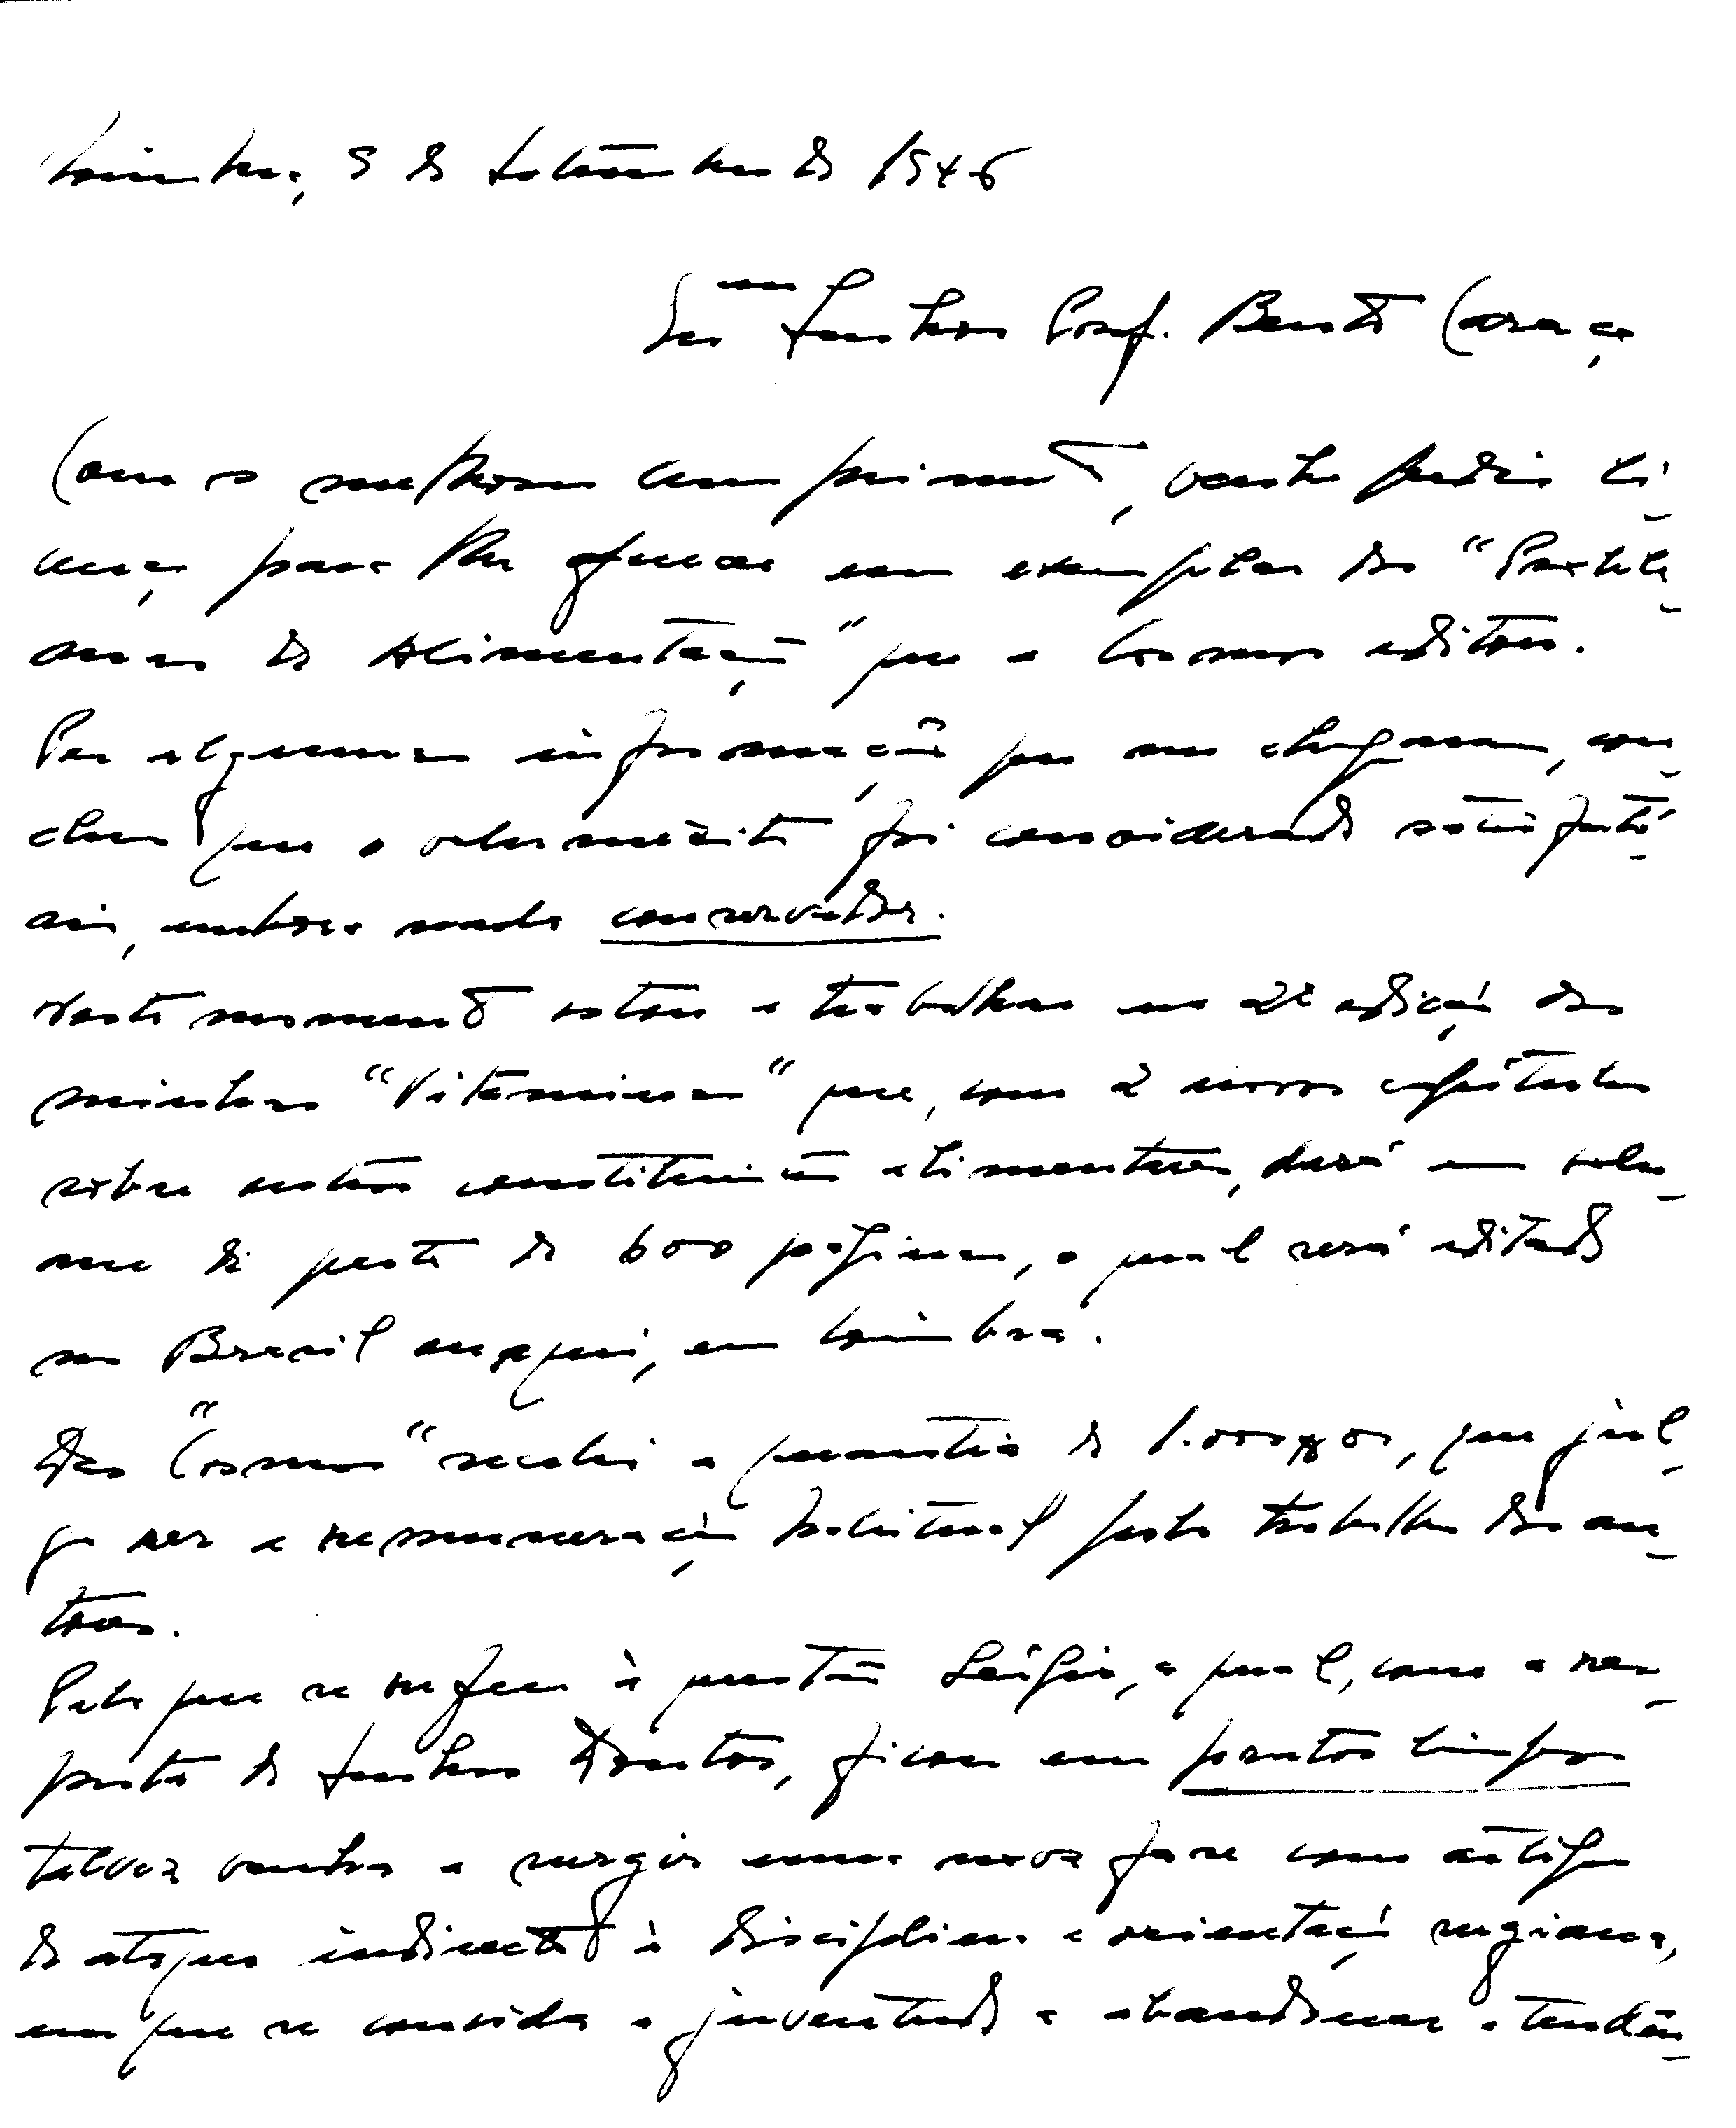 Coimbra, 9 de Setembro de 1946
Ex.mo Senhor Prof. Bento Caraça
Com os melhores cumprimentos, venho pedir li-
cença para lhe oferecer um exemplar dos "Proble-
mas de Alimentação" que a Cosmos editou.
Por algumas informações que me chegaram, con-
cluo que o volumezito foi considerado satisfató-
rio, embora nada conservador.
Neste momento estou a trabalhar na 2ª edição das
minhas "Vitaminas" que, com 2 novos capítulos
sobre outros constituintes alimentares, dará um volu-
me de perto de 600 páginas, o qual será editado
no Brasil ou aqui, em Coimbra.
Da "Cosmos" recebi a quantia de 1.000$00, que jul-
go ser a remuneração habitual pelo trabalho dos au-
tores.
Pelo que se refere à questão Sérgio, a qual, com a res-
posta do Senhor Doutor, ficou em pratos limpos
talvez venha a surgir uma nova fase com artigos
de ataque indirecto à disciplina e orientação sergiana,
em que se convida a juventude a abandonar a tendên-